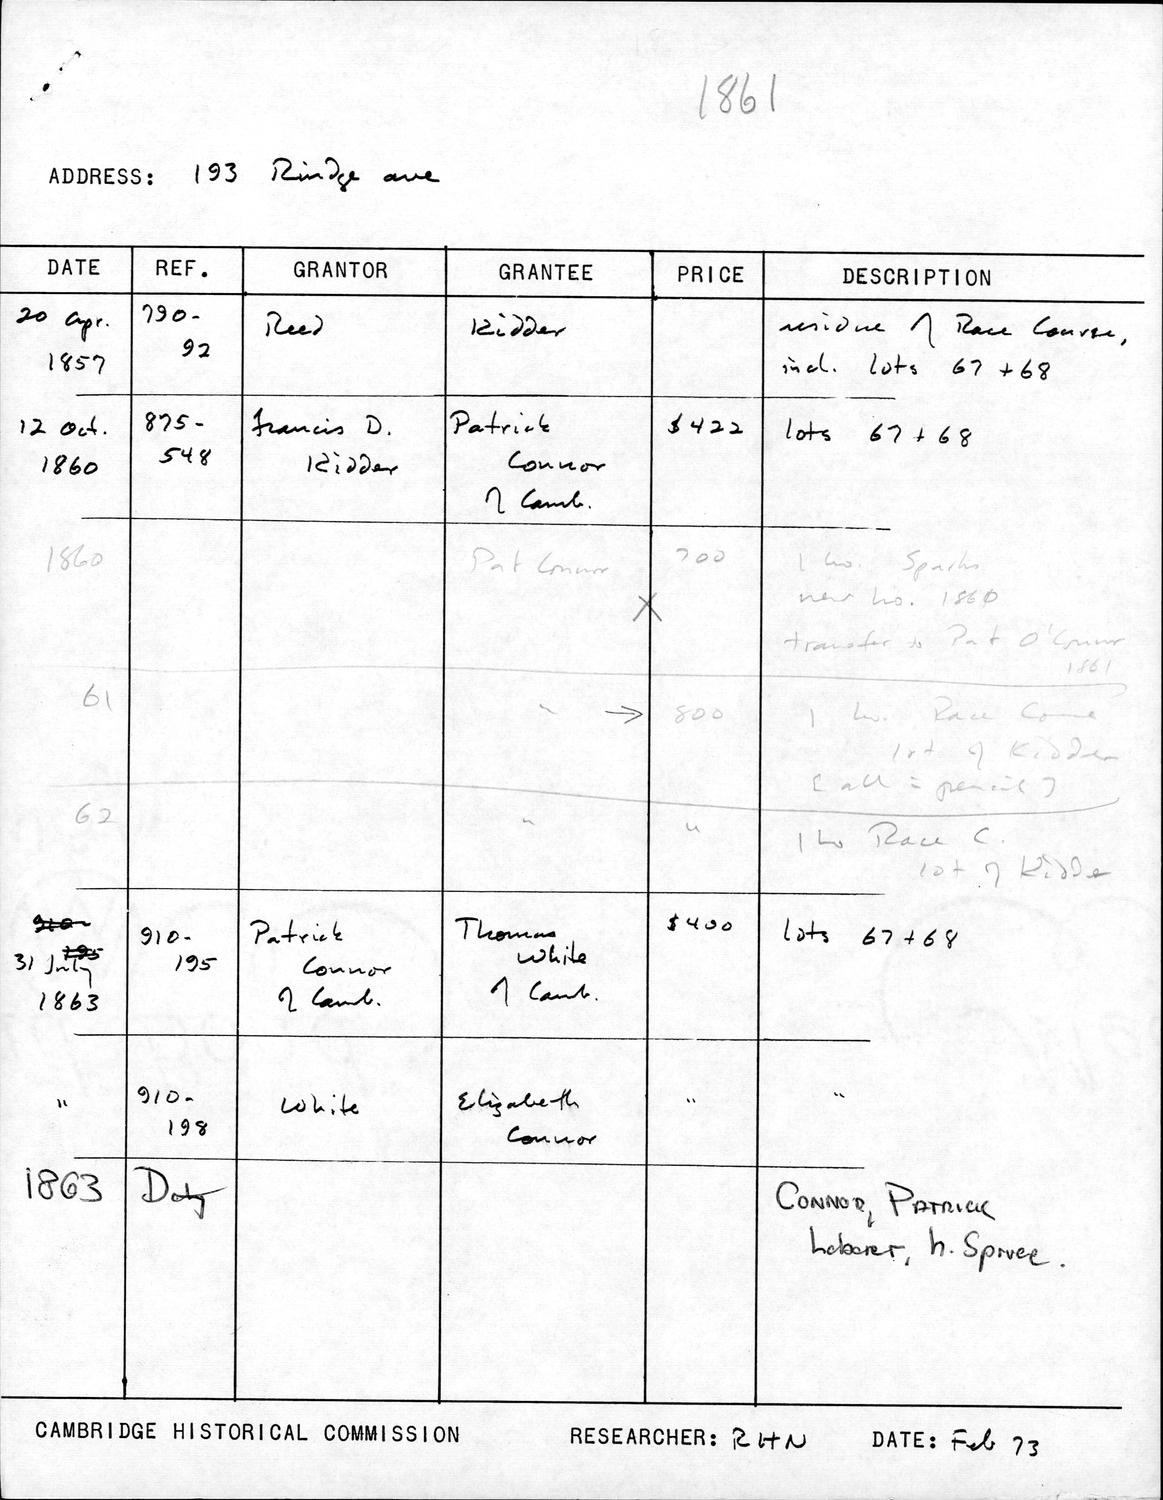 1861
ADDRESS: 193 Rindge ave
DATE REF. GRANTOR GRANTEE PRICE DESCRIPTION
20 Apr. 790- Reed Kidder residue of Race Course,
1857 92 incl. lots 67 + 68
12 Oct. 875- Francis D. Patrick $422 lots 67 + 68
1860 548 Kidder Connor
of Camb.
1860 Pat Connor 700 1 ho. Sparks
new ho. 1860
X
transfer to Pat O'Connor
1861
61 " → 800 1 ho. Race Course
lot of Kidder
[all in pencil]
62 " " 1 ho Race C.
lot of Kidder
31 July 910- Patrick Thomas $400 lots 67 + 68
1863 195 Connor White
of Camb. of Camb.
" 910- White Elizabeth " "
198 Connor
1863 Doty CONNOR, PATRICK
Laborer, h. Spruce.
CAMBRIDGE HISTORICAL COMMISSION RESEARCHER: RHN DATE: Feb 73